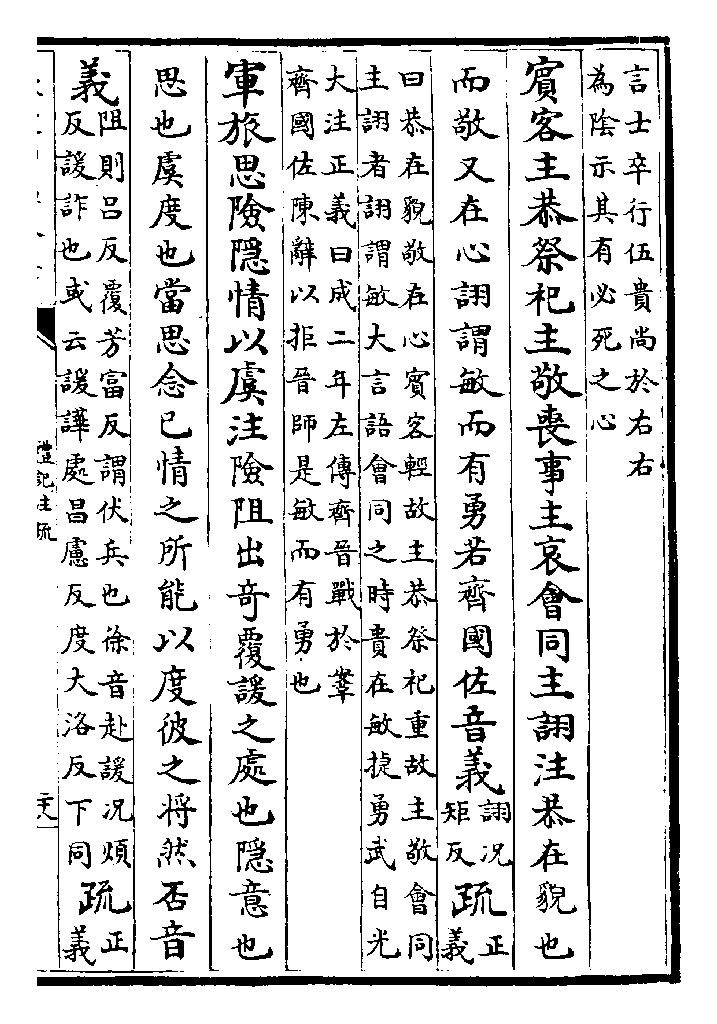 言士卒行伍貴尚於右右
為陰示其有必死之心
賓客主恭祭祀主敬喪事主哀會同主詡注恭在貌也
而敬又在心詡謂敏而有勇若齊國佐音義詡況矩反疏正義
曰恭在貌敬在心賓客輕故主恭祭祀重故主敬會同
主詡者詡謂敏大言語會同之時貴在敏捷勇武自光
大注正義曰成二年左傳齊晉戰於鞌
齊國佐陳辭以拒晉師是敏而有勇也
軍旅思險隱情以虞注險阻出奇覆諼之處也隱意也
思也虞度也當思念已情之所能以度彼之將然否音
義阻則呂反覆芳富反謂伏兵也徐音赴諼況煩反諼詐也或云諼譁處昌慮反度大洛反下同疏正義
禮記注疏
二十八